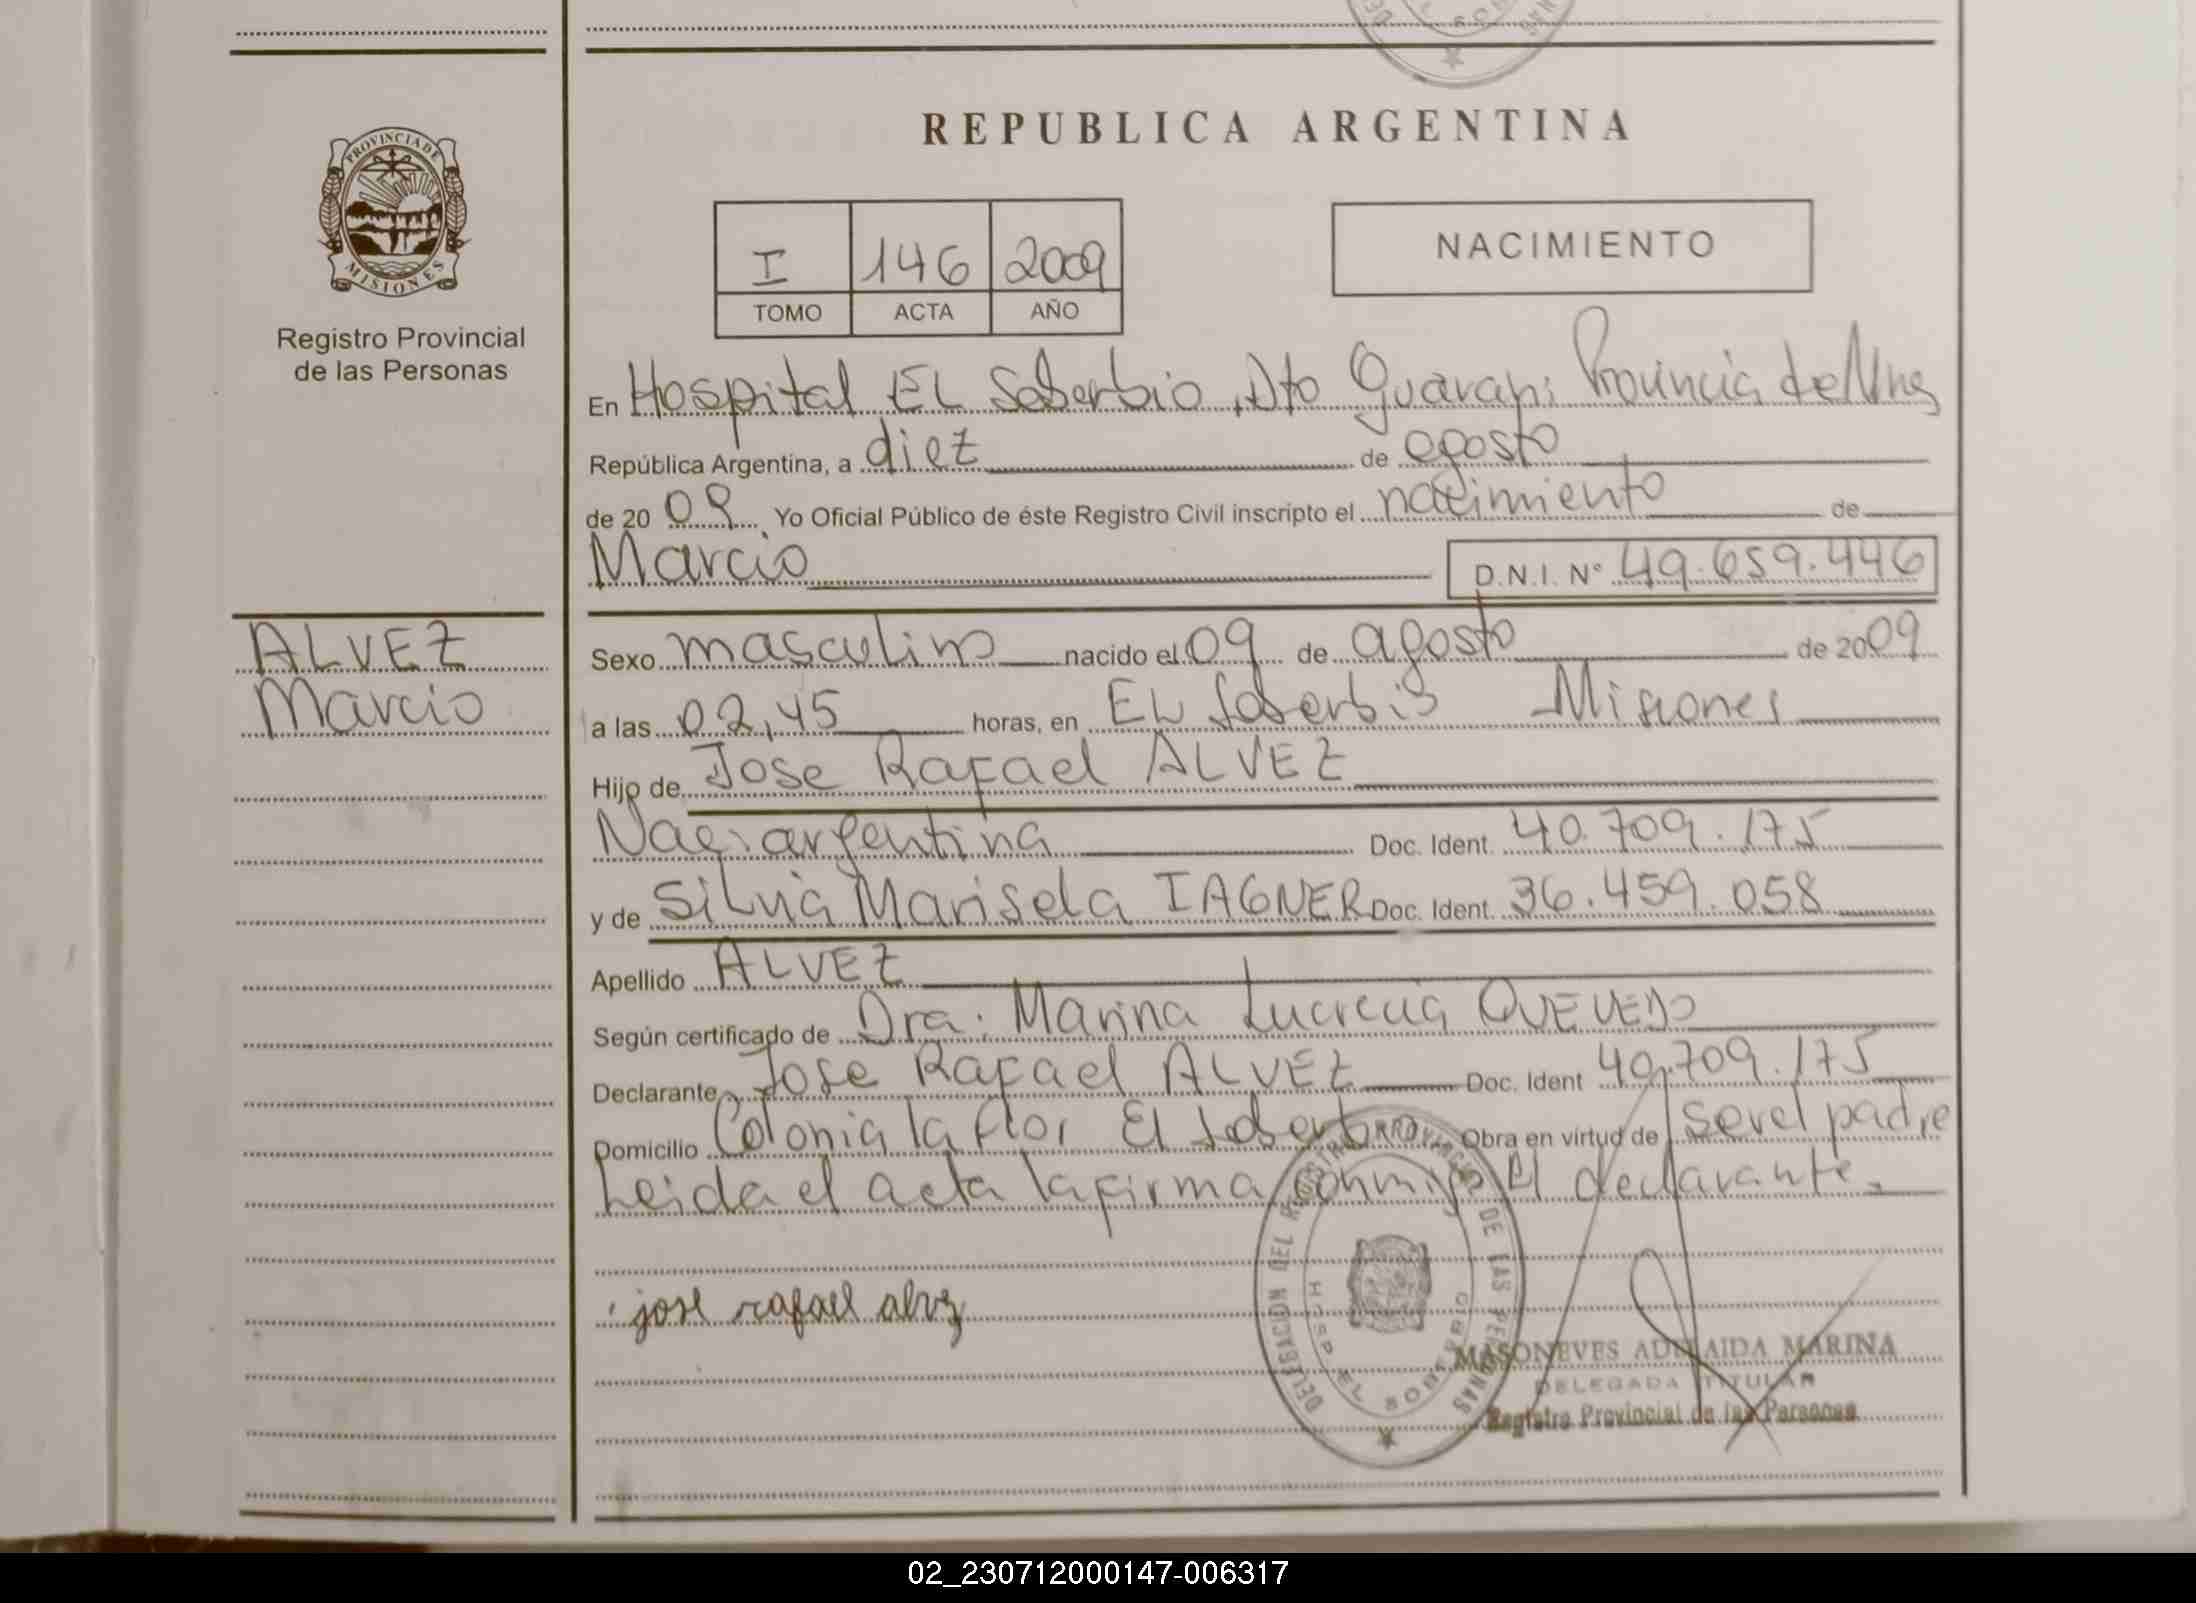 REPUBLICA ARGENTINA
PROVINCIA DE
MISIONES
Registro Provincial
de las Personas
I 146 2009
TOMO ACTA AÑO
NACIMIENTO
En Hospital EL Soberbio, Dto Guarani Provincia de Mnes
República Argentina, a diez de agosto
de 20 09 Yo Oficial Público de éste Registro Civil inscripto el nacimiento de
Marcio D.N.I. N° 49.659.446
ALVEZ
Marcio
Sexo masculino nacido el 09 de agosto de 2009
a las 02,45 horas, en EL Soberbio Misiones
Hijo de Jose Rafael ALVEZ
Nac: argentina Doc. Ident. 40.709.175
y de Silvia Marisela IAGNER Doc. Ident. 36.459.058
Apellido ALVEZ
Según certificado de Dra: Marina Lucrecia QUEVEDO
Declarante Jose Rafael ALVEZ Doc. Ident 40.709.175
Domicilio Colonia la Flor El Soberbio Obra en virtud de ser el padre
Leida el acta la firma conmigo el declarante.
jose rafael alvez
DELEGACION DEL REGISTRO PROVINCIAL DE LAS PERSONAS
HOSP EL SOBERBIO
MASONEVES ADELAIDA MARINA
DELEGADA TITULAR
Registro Provincial de las Personas
02_230712000147-006317